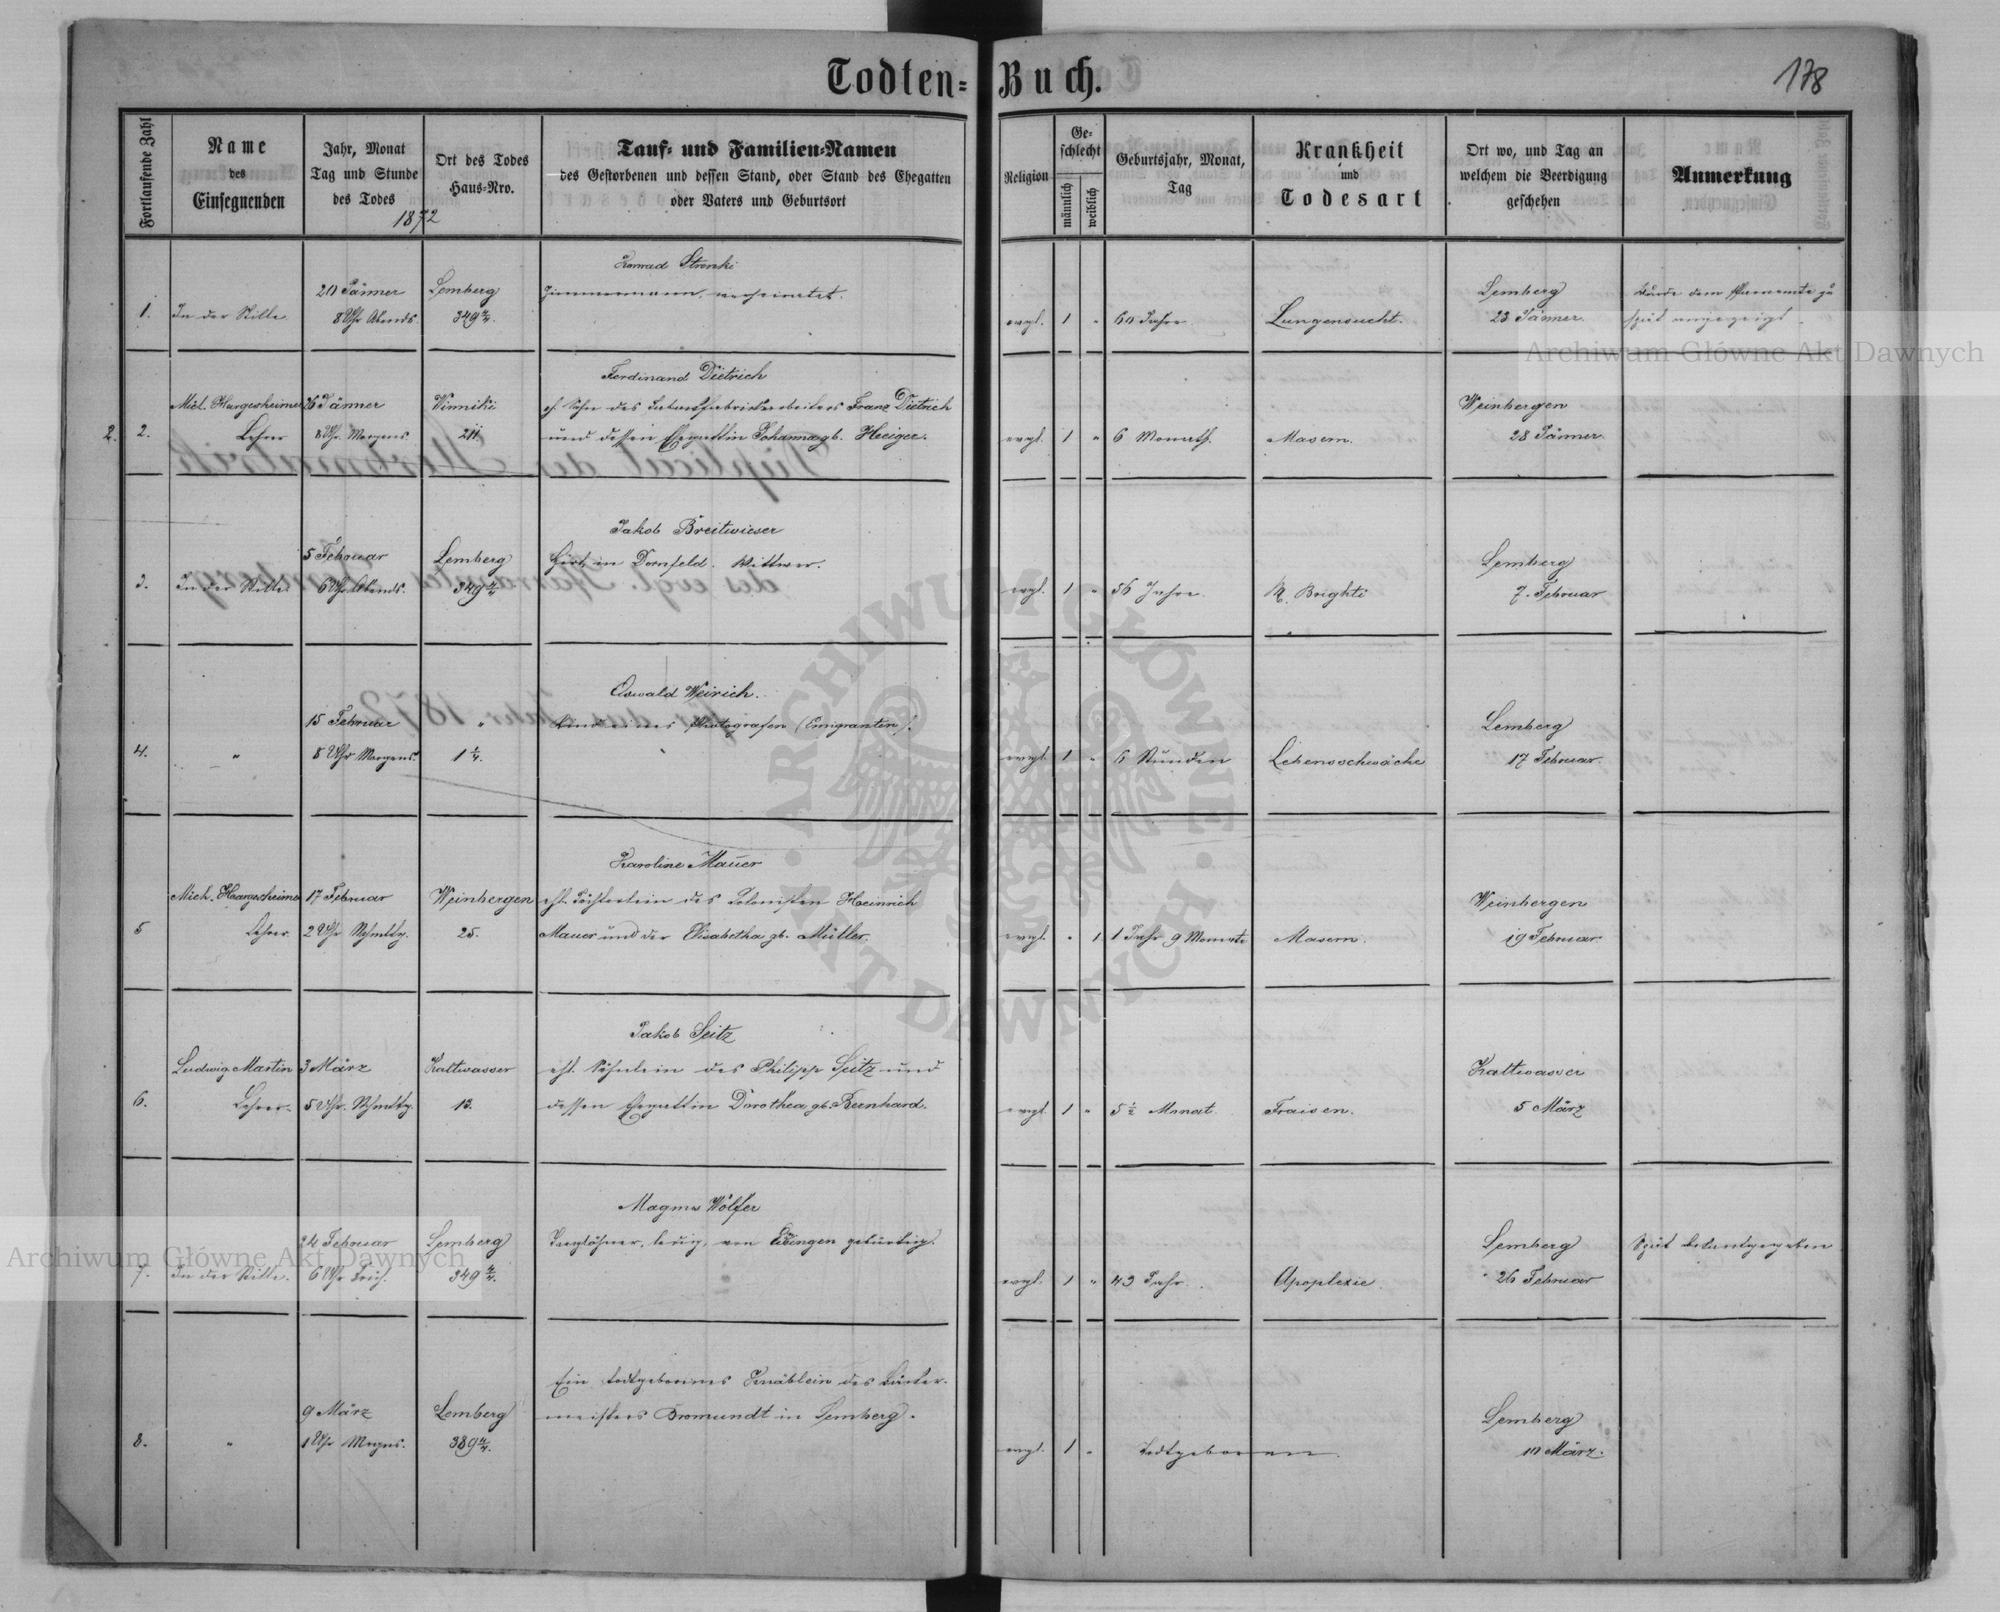 Todten-Buch.
178
Fortlaufende Zahl
Name
des
Einsegnenden
Jahr, Monat
Tag und Stunde
des Todes
1872
Ort des Todes
Haus-Nro.
Tauf- und Familien-Namen
des Gestorbenen und dessen Stand, oder Stand des Ehegatten
oder Vaters und Geburtsort
Religion
Ge-
schlecht
männlich
weiblich
Geburtsjahr, Monat,
Tag
Krankheit
und
Todesart
Ort wo, und Tag an
welchem die Beerdigung
geschehen
Anmerkung
1.
In der Stille
20 Jänner
8 Uhr Abends.
Lemberg
349 4/4.
Konrad Stronki
Zimmermann, verheiratet.
evgl.
1
"
60 Jahre
Lungensucht.
Lemberg
23 Jänner.
Wurde dem Pfarramte zu
spät angezeigt.
2. 2.
Mich. Hargesheimer
Lehrer
26 Jänner
8 Uhr Morgens.
Winniki
211
Ferdinand Dietrich
eh. Sohn des Tabakfabriksarbeiters Franz Dietrich
und dessen Ehegattin Johanna gb. Heiger.
evgl.
1
"
6 Monath.
Masern.
Weinbergen
28 Jänner.
3.
In der Stille.
5 Februar
6 Uhr Abends.
Lemberg
349 4/4
Jakob Breitwieser
Hirt in Dornfeld. Wittwer.
evgl.
1
"
56 Jahre.
M. Brighti
Lemberg
7. Februar
4.
"
15 Februar
8 Uhr Morgens.
"
1 1/4.
Oswald Weirich.
Kind eines Photografen (Emigranten).
evgl.
1
"
6 Stunden
Lebensschwäche
Lemberg
17 Februar.
5
Mich. Hargesheimer
Lehrer.
17 Februar
2 Uhr Nchmttg.
Weinbergen
25.
Karoline Mauer
ehl. Töchterlein des Kolonisten Heinrich
Mauer und der Elisabetha gb. Müller.
evgl.
"
1
1 Jahr 9 Monate
Masern.
Weinbergen
19 Februar
6.
Ludwig Martin
Lehrer.
3 März
5 Uhr Nchmttg.
Kaltwasser
13.
Jakob Seitz
ehl. Söhnlein des Philipp Seitz und
dessen Ehegattin Dorothea gb. Bernhard.
evgl.
1
"
5 1/2 Monat.
Fraisen.
Kaltwasser
5 März
7.
In der Stille.
24 Februar
6 Uhr Früh.
Lemberg
349 4/4.
Magnus Wölfer
Taglöhner, ledig, von
gebürtig.
evgl.
1
"
43 Jahr.
Apoplexie.
Lemberg
26 Februar
Spät bekanntgegeben
8.
"
9 März
1 Uhr Mrgns.
Lemberg
389 4/4.
Ein todtgebornes Knäblein des Bäcker-
meisters Dromundt in Lemberg.
evgl.
1
"
Todtgeboren.
Lemberg
10 März.
Duplicat der Sterbmatrik
des evgl. Pfarramtes Lemberg
für das Jahr 1872
Archiwum Główne Akt Dawnych
Archiwum Główne Akt Dawnych
ARCHIWUM GŁÓWNE AKT DAWNYCH